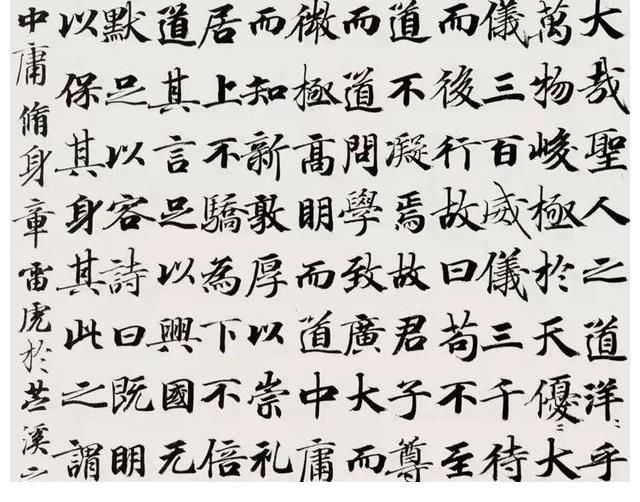 大哉聖人之道洋〻乎
萬物峻極於天優〻大
儀三百威儀三千待
而後行故曰苟不至
道不凝焉故君子尊
而道問學致廣大而
微極高明而道中庸
而知新敦厚以崇礼
居上不驕為下不倍
道其言足以興國无
默足以容詩曰既明
以保其身其此之謂
中庸脩身章雷虎於溪